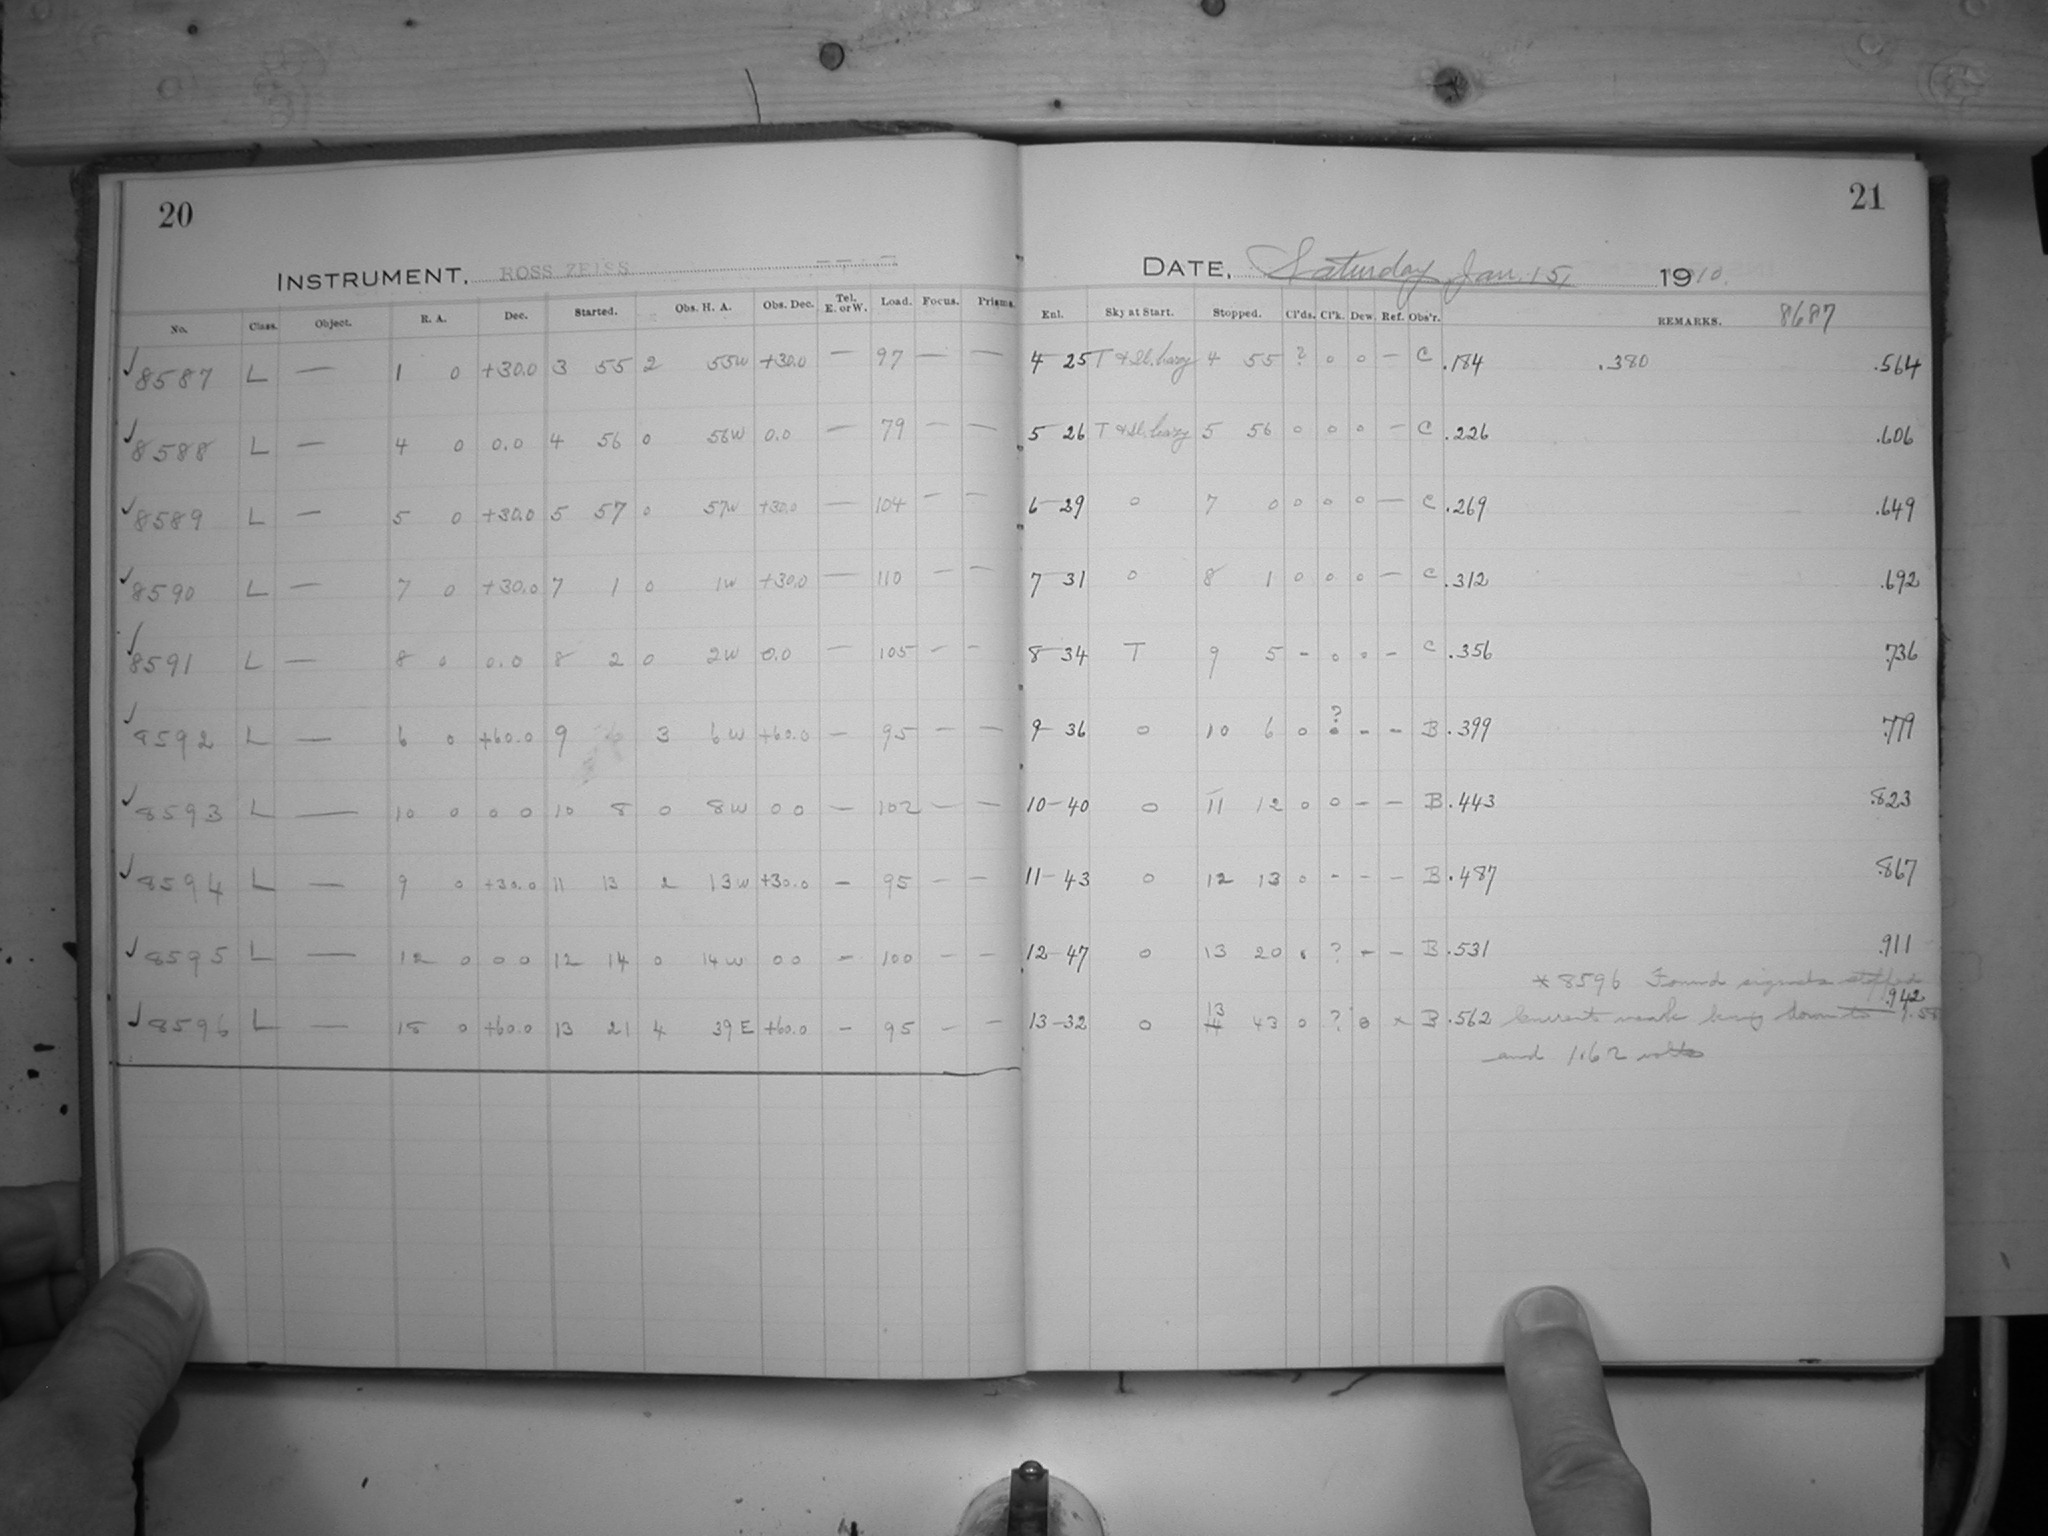 20
21
INSTRUMENT, ROSS ZEISS
DATE, Saturday Jan. 15, 1910.
No. Class. Object. R. A. Dec. Started. Obs. H. A. Obs. Dec. Tel. E. or W. Load. Focus. Prisms. Enl. Sky at Start. Stopped. Cl'ds. Cl'k. Dew. Ref. Obs'r. REMARKS. 8687
✓ 8587 L — 1 0 +30.0 3 55 2 55W +30.0 — 97 — — 4-25 T & Sl. hazy 4 55 ? 0 0 — C .184 .380 .564
✓ 8588 L — 4 0 0.0 4 56 0 56W 0.0 — 79 — — 5-26 T & Sl. hazy 5 56 0 0 0 — C .226 .606
✓ 8589 L — 5 0 +30.0 5 57 0 57W +30.0 — 104 — — 6-29 0 7 0 0 0 0 — C .269 .649
✓ 8590 L — 7 0 +30.0 7 1 0 1W +30.0 — 110 — — 7-31 0 8 1 0 0 0 — C .312 .692
✓ 8591 L — 8 0 0.0 8 2 0 2W 0.0 — 105 — — 8-34 T 9 5 - 0 0 — C .356 .736
✓ 8592 L — 6 0 +60.0 9 6 3 6W +60.0 — 95 — — 9-36 0 10 6 0 ? 0 - - B .399 .779
✓ 8593 L — 10 0 0 0 10 8 0 8W 0 0 — 102 — — 10-40 0 11 12 0 0 - - B .443 .823
✓ 8594 L — 9 0 +30.0 11 13 2 13W +30.0 — 95 — — 11-43 0 12 13 0 - - - B .487 .867
✓ 8595 L — 12 0 0 0 12 14 0 14W 0 0 — 100 — — 12-47 0 13 20 ? - - B .531 .911
* 8596 Found signals stopped
✓ 8596 L — 18 0 +60.0 13 21 4 39E +60.0 — 95 — — 13-32 0 13 43 0 ? 0 * B .562 Currents weak being down to 1.58 .942
and 1.62 volts